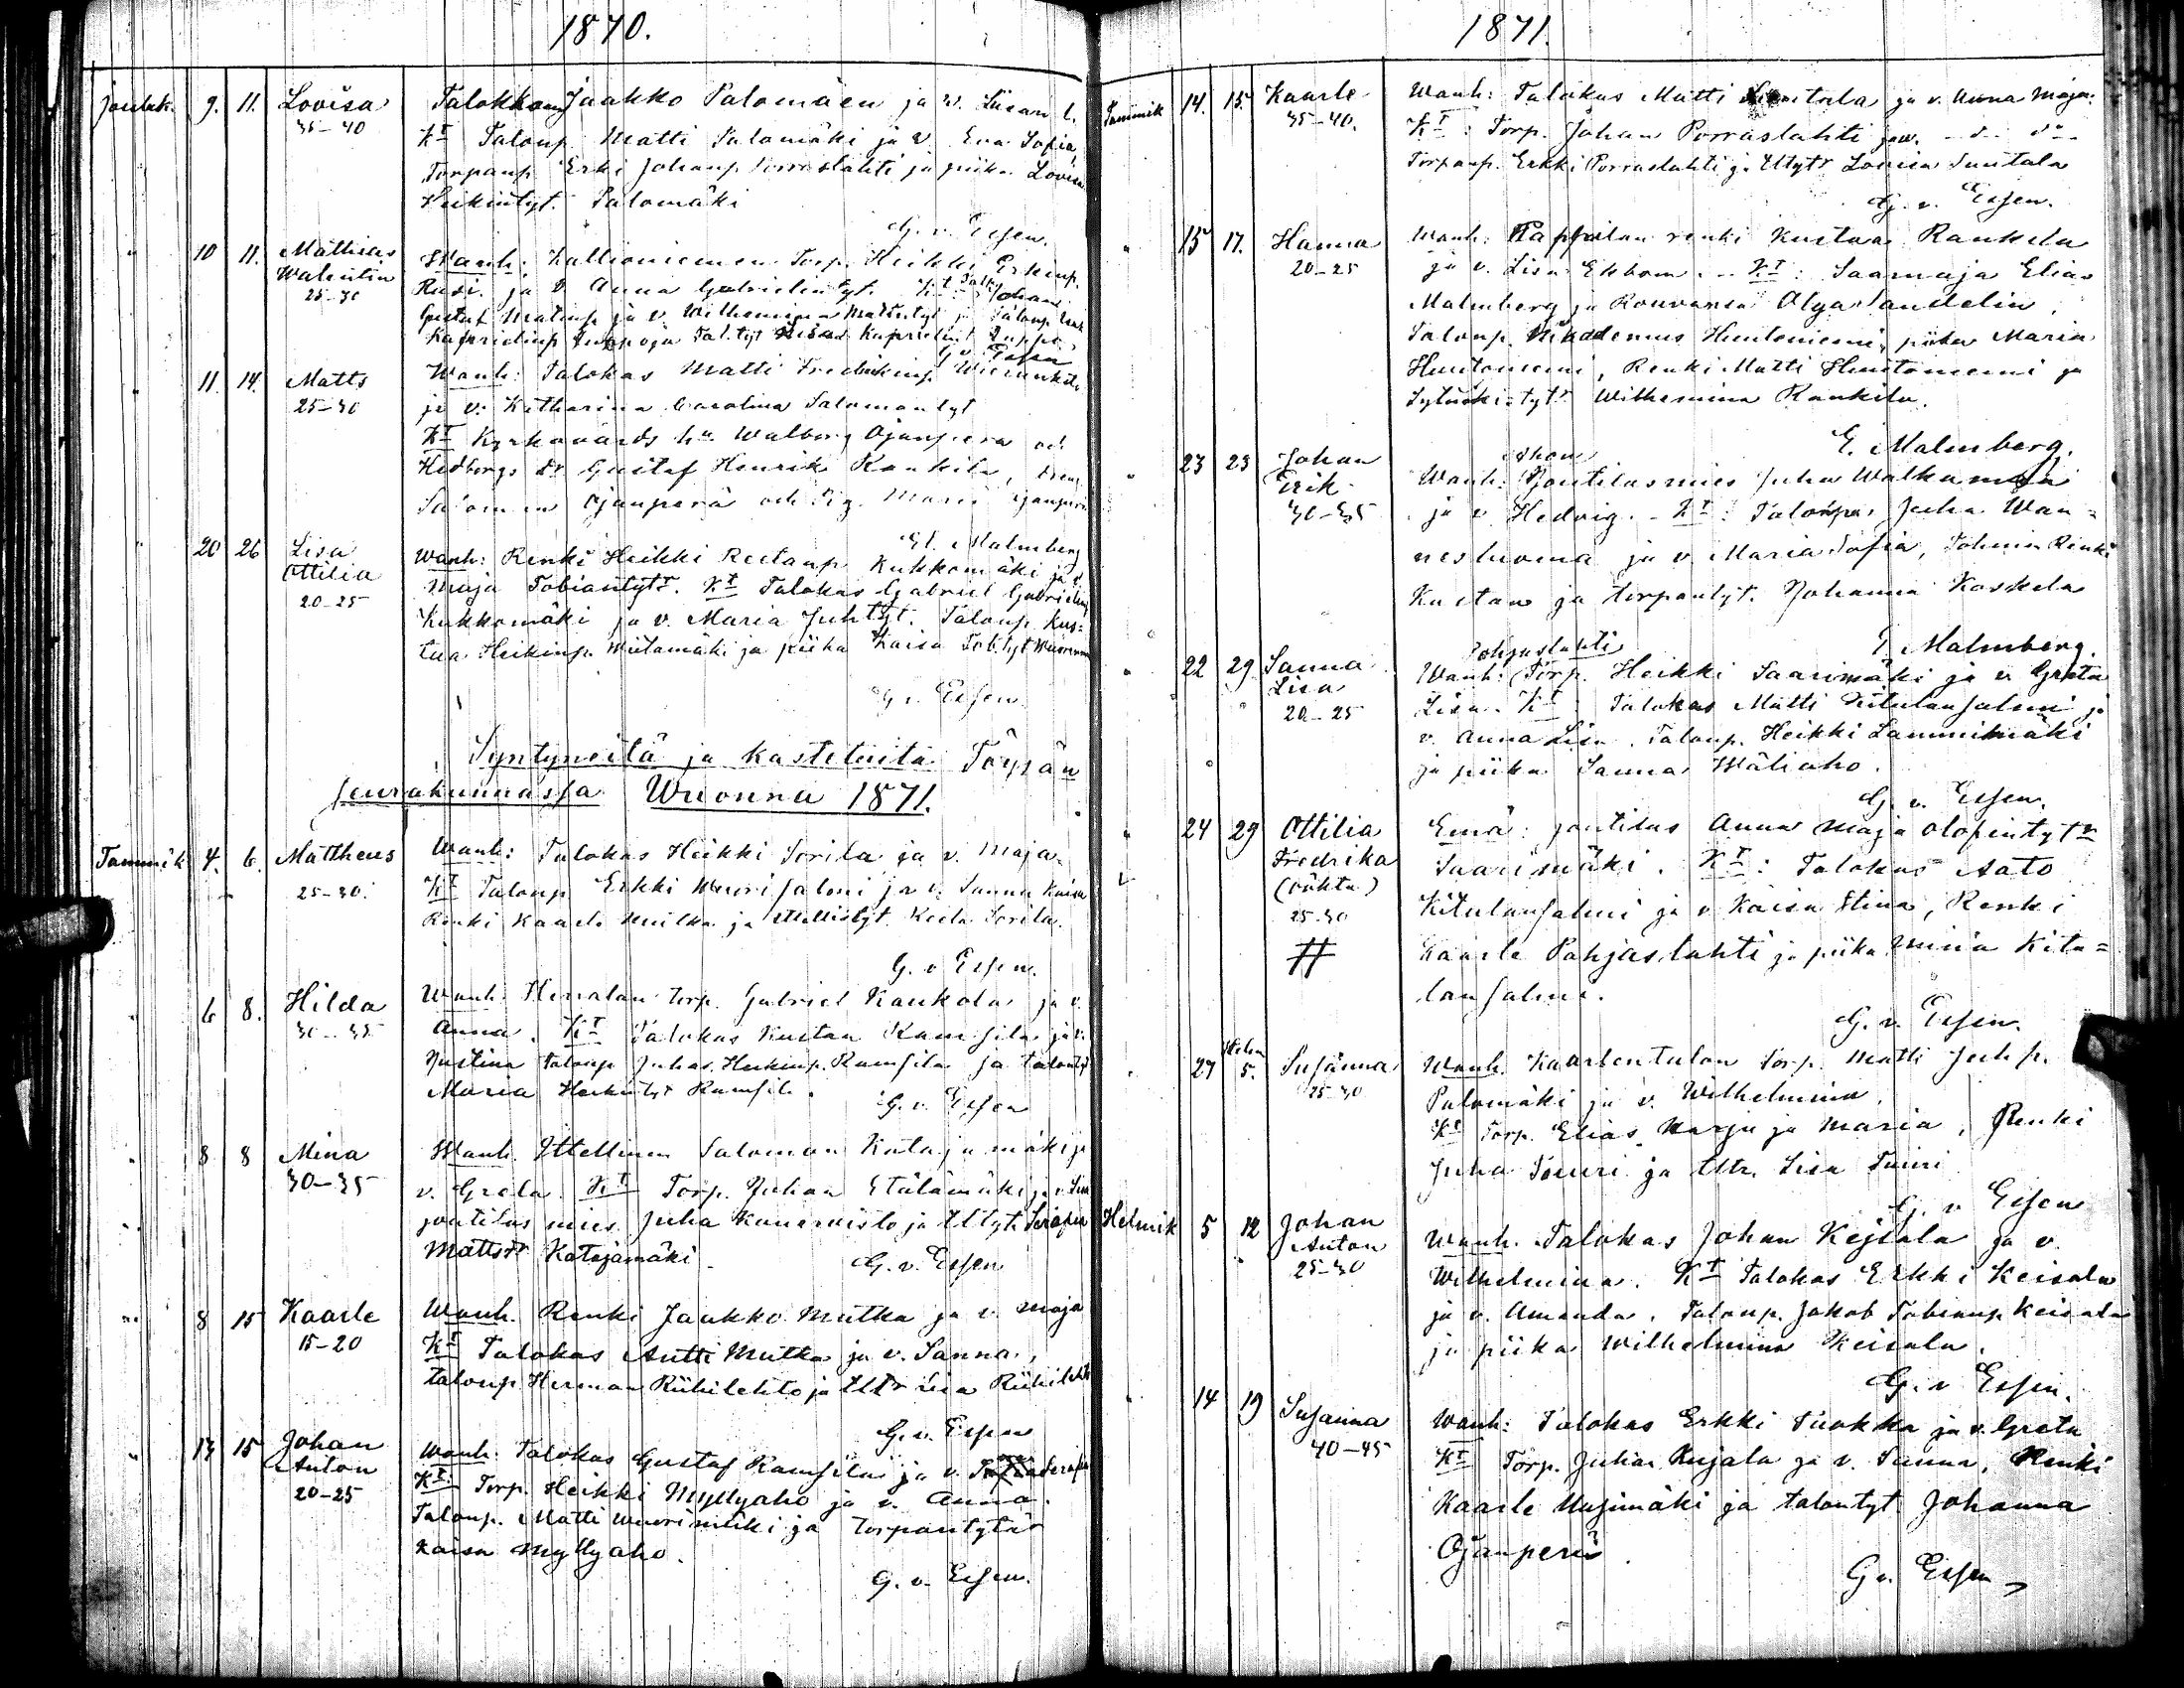 1870.
Jouluk. 9. 11. Lovisa Talokkaan Jaakko Palomäen ja v. Susan L.
35-40 Kt Taloup Matti Palomäki ja v. Eva Sofia,
Torpanp Erki Johanp Porraslahti ja piika Lovisa
Heikintyt. Palomäki
G. v. Essen.
" 10 11. Mathias Wanh: Kallioniemen Torp. Heikki Erkinp.
Walentin Rusi. ja v. Anna Gabrielintyt. Kt Johan
25-30 Gustaf Matinp ja v. Wilhemina Mattintyt ja Taloup
G. v. Essen
" 11. 14. Matts Wanh: Talokas Matti Fredrikinp.
25-30 ja v. Katharina Carolina Salomontyt
Kt Kyrkovärds Walborg Ojanperä och
Hedbergs Dr Gustaf Henrik Kankila,
Salomon Ojanperä och Pig. Maria Ojanperä
El. Malmberg
" 20 26 Lisa Wanh: Renki Heikki Reetanp Kukkomäki ja v.
Ottilia Maja Tobiantytr. Kt Talokas Gabriel Gabrielinp
20-25 Kukkomäki ja v. Maria Juhtyt. Taloup. Kus=
taa Heikinp. Wiitamäki ja piika Kaisa Tob.tyt
G. v. Essen
Syntyneitä ja kastetuita Töysän
seurakunnassa Wuonna 1871.
Tammik 4. 6. Mattheus Wanh: Talokas Heikki Sorila ja v. Maja.
25-30. Kt Taloup Erkki Wuorisalmi ja v. Sanna Kaisa
Renki Kaarle Mutka ja Ittellistyt. Reeta Sorila.
G. v. Essen.
" 6 8. Hilda Wanh. Herralan torp. Gabriel Kaukola ja v.
30-35 Anna. Kt Talokas Kustaa Ramsila ja v.
Justina taloup Juhas Heikinp. Ramsila ja talontyt
Maria Heikintyt Ramsila. G. v. Essen
" 8 8 Mina Wanh. Ittellinen Salomon Katajamäki ja
30-35 v. Greta. Kt Torp. Juhan Etälämäki ja v. Lisa
joutilas mies Juha Kanervisto ja Ittlyt. Serafia
Mattsdr Katajamäki. G. v. Essen
" 8 15 Kaarle Wanh. Renki Jaakko Mutka ja v. Maja
15-20 Kt Talokas Antti Mutka ja v. Sanna,
taloup Herman Riihilehto ja Ittr Lisa Riihilehto
G. v. Essen
" 13 15 Johan Wanh: Talokas Gustaf Ramsila ja v.
Anton Kt: Torp. Heikki Myllyaho ja v. Anna.
20-25 Taloup. Matti Wuorimäki ja Torpantytär
Kaisa Myllyaho.
G. v. Essen.
1871.
Tammik 14. 15. Kaarle Wanh: Talokas Matti ja v. Anna Maja.
35-40. Kt: Torp. Johan Porraslahti ja v.
Torpanp. Erkki Porraslahti ja Ittyt Lovisa Suutala
G. v. Essen.
" 15 17. Hanna Wanh: Pappilan renki Kustaa Rankila
20-25 ja v. Lisa Ekbom. - Kt: Saarnaja Elias
Malmberg ja Rouvansa Olga Sandelin,
Taloup. Nikodemus Huntoniemi, piika Maria
Huntoniemi, Renki Matti Huntoniemi ja
Wilhemina Rankila.
E. Malmberg.
" 23 25 Johan Wanh: Joutilasmies Juha Walkamaa
Erik ja v. Hedvig. - Kt: Talonpa. Juha Wan=
30-35 nesluoma ja v. Maria Sofia, Renki
Kustaa ja torpantyt. Johanna Koskela
E. Malmberg.
Pohjaslahti
" 22 29 Sanna Wanh: Torp. Heikki Saarimäki ja v. Greta
Lisa Lisa. Kt Talokas Matti Kitulansalmi ja
20-25 v. Anna Lisa. Taloup. Heikki Lamminmäki
ja piika Sanna Wäliaho.
G. v. Essen.
" 24 29 Ottilia Emä: joutilas Anna Maja Olopintytr
Fredrika Saarimäki. Kt: Talokas Aato
25-30 Kitulansalmi ja v. Kaisa Stina, Renki
# Kaarle Pohjaslahti ja piika Miina Kitu=
lansalmi.
G. v. Essen.
" 27 Helm 5. Susanna Wanh. Kaarlentalon torp. Matti Juhp.
25-30 Palomäki ja v. Wilhelmina.
Kt Torp. Elias Harju ja Maria, Renki
Juha Tuuri ja Ittr. Lisa Tuuri
G. v. Essen
Helmik 5 12 Johan Wanh. Talokas Johan Keisala ja v.
Anton Wilhelmina. Kt Talokas Erkki Keisala
25-30 ja v. Amanda. Taloup. Jakob Tobianp. Keisala
ja piika Wilhelmina Keisala.
G. v. Essen.
" 14 19 Susanna Wanh: Talokas Erkki Tuokka ja v. Greta
40-45 Kt Torp. Juha Kujala ja v. Sanna, Renki
Kaarle Uusimäki ja talontyt. Johanna
Ojanperä.
G. v. Essen